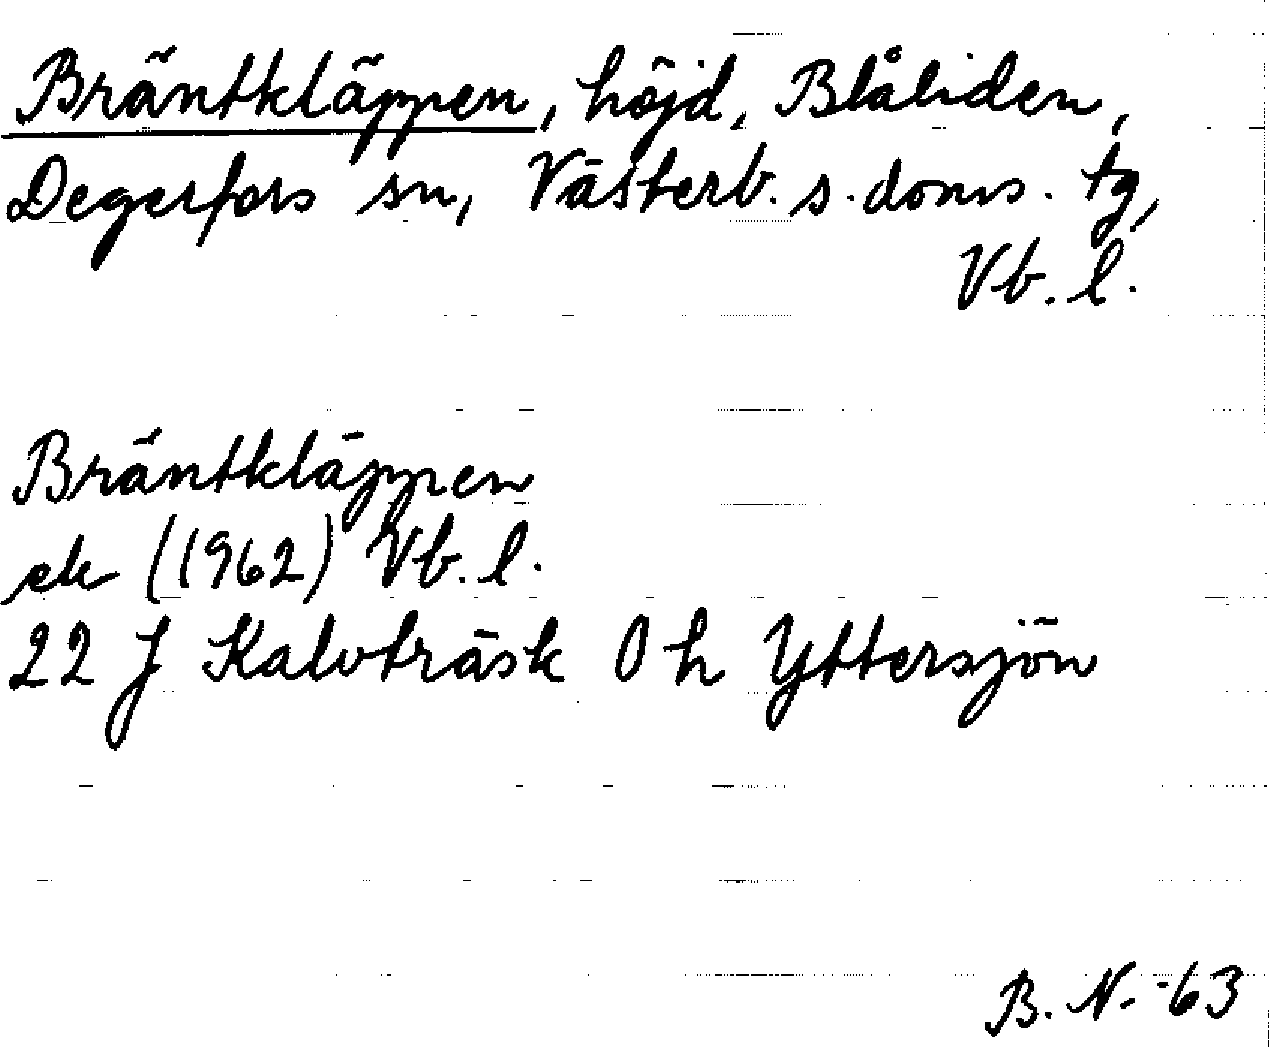 Bräntkläppen, höjd, Blåliden,
Degerfors sn, Västerb. s. doms. tg,
Vb. l.
Bräntkläppen
ek (1962) Vb. l.
22 J Kalvträsk 0 h Yttersjön
B. N. -63